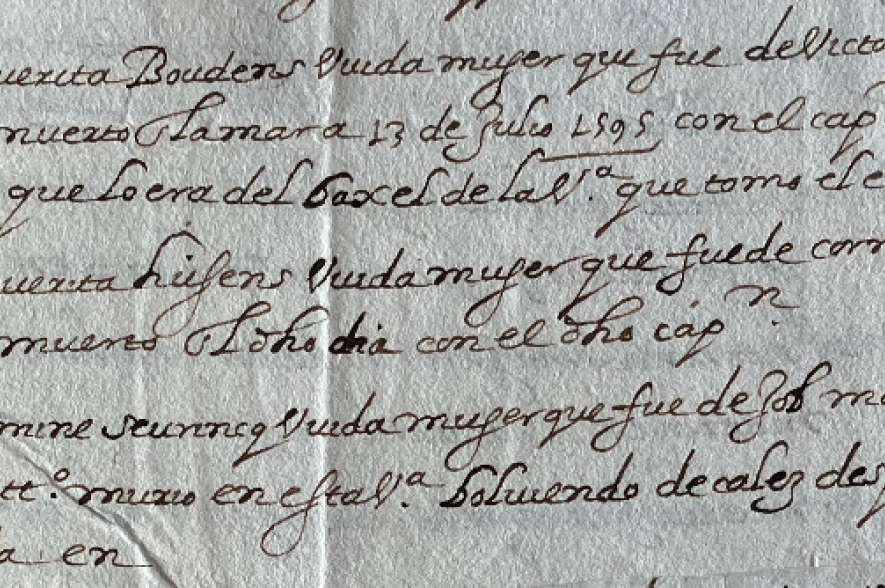 uerita Boudens Viuda muger que fue de Victo
muerto En la mar a 13 de Julio 1595 con el cap
que lo era del baxel de la V.ª que tomo el e
uerita hüsens Viuda muger que fue de corn
muerto El dho dia con el dho cap.n
mine Viuda muger que fue de Job ma
tt.º murio en esta V.ª bolviendo de calez des
a en